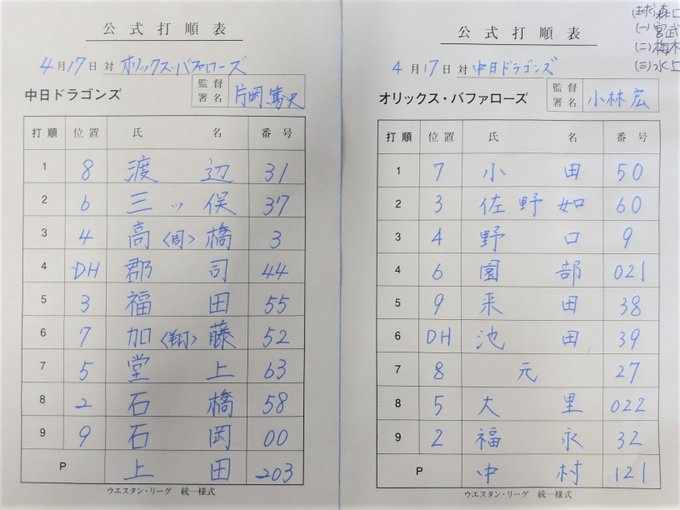 公式打順表
4月17日 対 オリックス・バファローズ
中日ドラゴンズ 監督署名 片岡篤史
打順 位置 氏名 番号
1 8 渡辺 31
2 6 三ッ俣 37
3 4 高〈周〉橋 3
4 DH 郡司 44
5 3 福田 55
6 7 加〈翔〉藤 52
7 5 堂上 63
8 2 石橋 58
9 9 石岡 00
P 上田 203
ウエスタン・リーグ 統一様式
公式打順表
(球)森口
(一)宮武
(二)梅木
(三)水上
4月17日 対 中日ドラゴンズ
オリックス・バファローズ 監督署名 小林宏
打順 位置 氏名 番号
1 7 小田 50
2 3 佐野如 60
3 4 野口 9
4 6 園部 021
5 9 来田 38
6 DH 池田 39
7 8 元 27
8 5 大里 022
9 2 福永 32
P 中村 121
ウエスタン・リーグ 統一様式